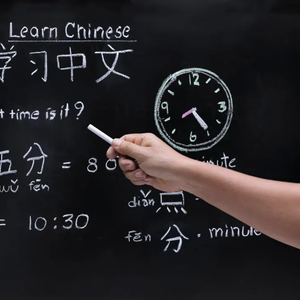 Learn Chinese
学习中文
t time is it?
12
3
6
9
五分 = 8
wǔ fēn
minute
diǎn 点
= 10:30
fēn 分 · minute